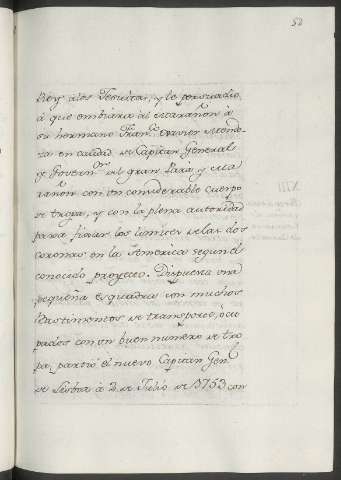 52
Rey alos Jesuitas, y le persuadio,
à que embiara al Marañon à
su hermano Fran.co Xavier Mendo-
za en calidad de Capitan General
y Govern.or del gran Parà y Ma-
rañon con un considerable cuerpo
de tropa, y con la plena autoridad
para fixar los limites de las dos
coronas en la America segun el
conocido proyecto. Dispuesta una
pequeña esquadra con muchos
bastimentos de transporte, ocu-
pados con un buen numero de tro-
pa, partiò el nuevo Capitan Gen.l
de Lisboa à 2 de Julio de 1753 con